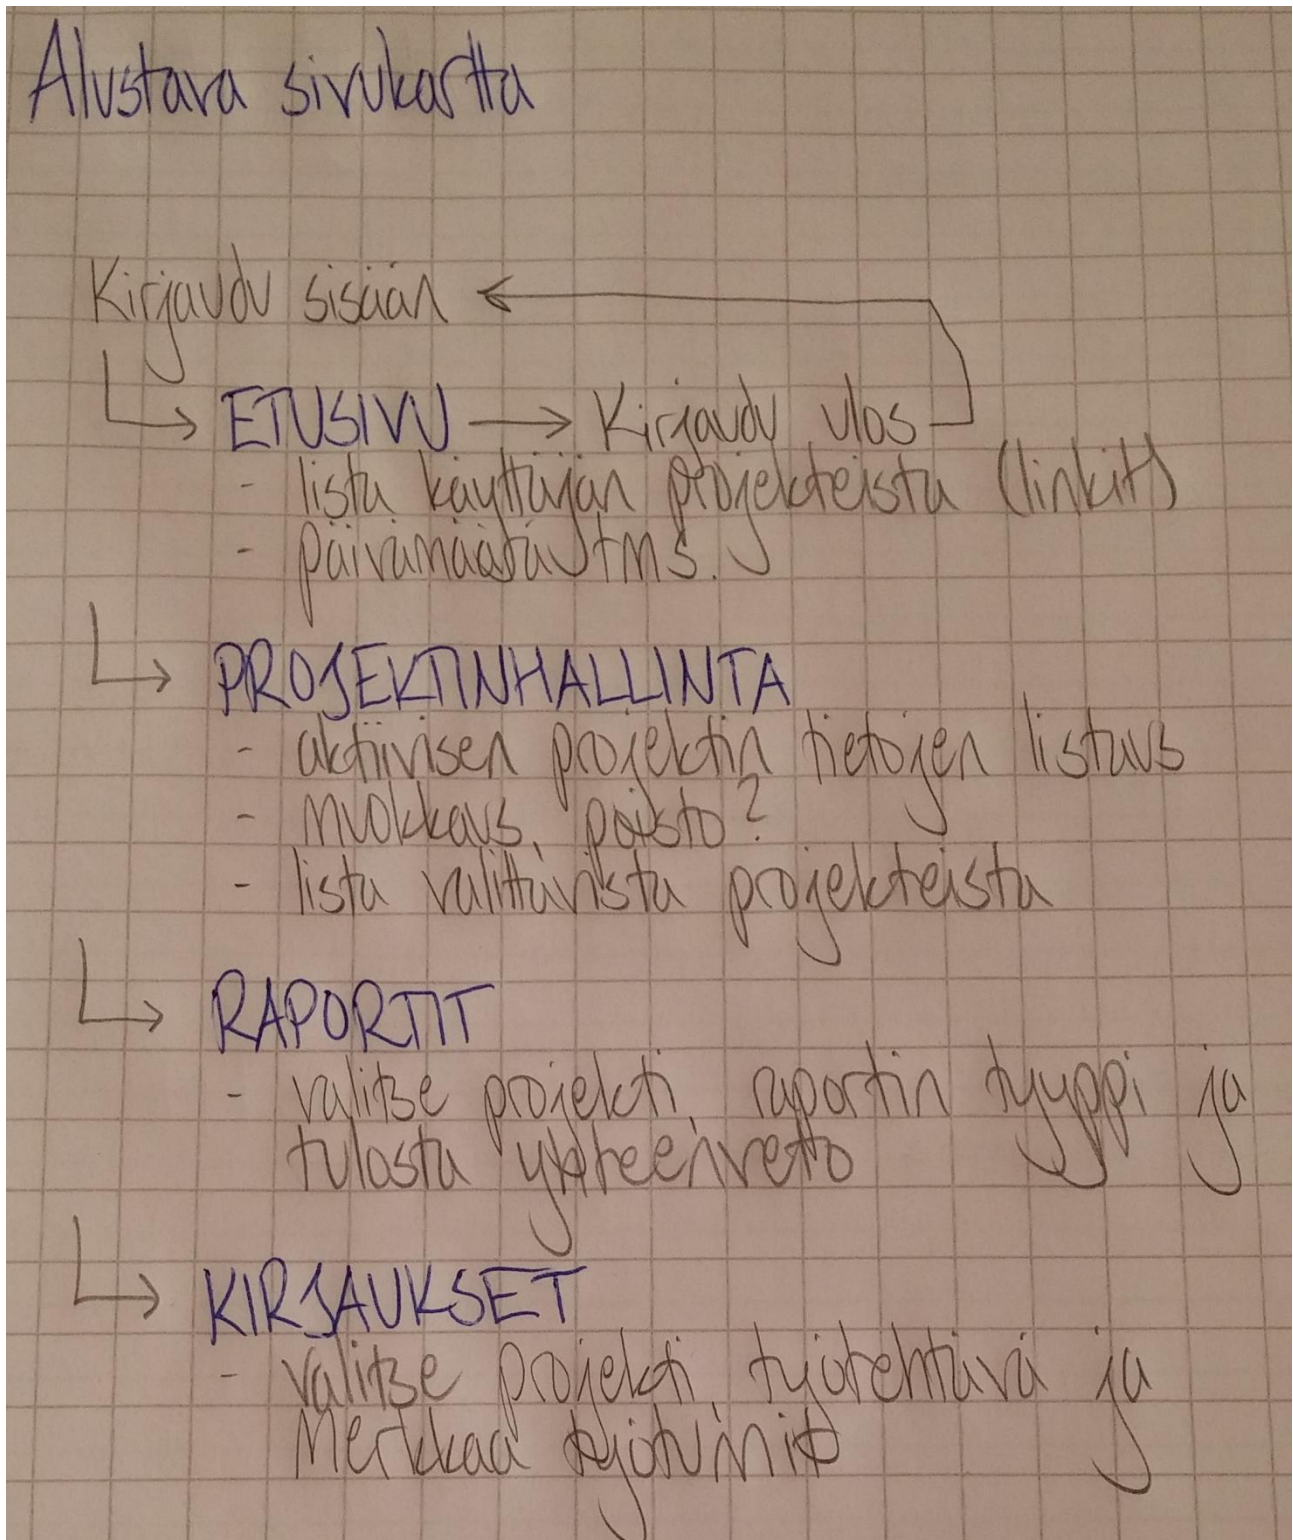 Alustava sivukartta
Kirjaudu sisään
ETUSIVU → Kirjaudu ulos
- lista käyttäjän projekteista (linkit)
- päivämäärä tms.
PROJEKTINHALLINTA
- aktiivisen projektin tietojen listaus
- muokkaus, poisto?
- lista valittavista projekteista
RAPORTIT
- valitse projekti, raportin tyyppi ja
tulosta yhteenveto
KIRJAUKSET
- valitse projekti, työtehtävä ja
merkkaa työtunnit